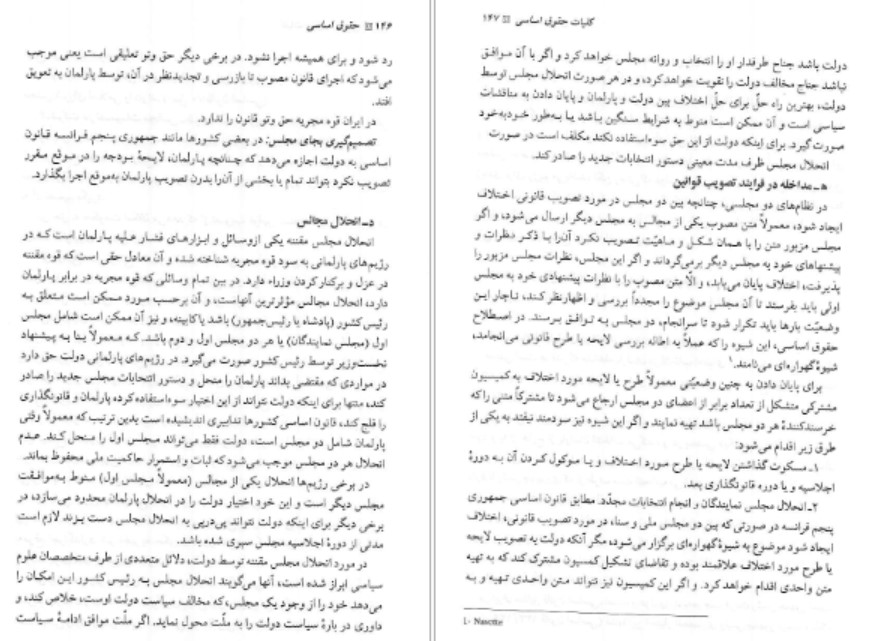 ۱۴۶ حقوق اساسی
رد شود و برای همیشه اجرا نشود. در برخی دیگر حق وتو تعلیقی است یعنی موجب
می‌شود که اجرای قانون مصوب تا بازرسی و تجدیدنظر در آن، توسط پارلمان به تعویق
افتد.
در ایران قوه مجریه حق وتو قانون را ندارد.
تصمیم‌گیری بجای مجلس: در بعضی کشورها مانند جمهوری پنجم فرانسه قانون
اساسی به دولت اجازه می‌دهد که چنانچه پارلمان، لایحهٔ بودجه را در موقع مقرر
تصویب نکرد بتواند تمام یا بخشی از آن‌را بدون تصویب پارلمان به‌موقع اجرا بگذارد.
د ـ انحلال مجالس
انحلال مجلس مقننه یکی ازوسائل و ابزارهای فشار علیه پارلمان است‌که در
رژیم‌های پارلمانی به سود قوه مجریه شناخته شده و آن معادل حقی است که قوه مقننه
در عزل و برکنار کردن وزراء دارد. در بین تمام وسائلی که قوه مجریه در برابر پارلمان
دارد، انحلال مجالس مؤثرترین آنهاست، و آن برحسب مورد ممکن است متعلق به
رئیس کشور (پادشاه یا رئیس‌جمهور) باشد یاکابینه، و نیز آن ممکن است شامل مجلس
اول (مجلس نمایندگان) یا هر دو مجلس اول و دوم باشد. که معمولاً بنا به پیشنهاد
نخست‌وزیر توسط رئیس کشور صورت می‌گیرد. در رژیم‌های پارلمانی دولت حق دارد
در مواردی که مقتضی بداند پارلمان را منحل و دستور انتخابات مجلس جدید را صادر
کند، منتها برای اینکه دولت نتواند از این اختیار سوءاستفاده‌کرده پارلمان و قانونگذاری
را فلج کند، قانون اساسی کشورها تدابیری اندیشیده است بدین ترتیب که معمولاً وقتی
پارلمان شامل دو مجلس است، دولت فقط می‌تواند مجلس اول را منحل کند. عدم
انحلال هر دو مجلس موجب می‌شود که ثبات و استمرار حاکمیت ملی محفوظ بماند.
در برخی رژیم‌ها انحلال یکی از مجالس (معمولاً مجلس اول) منوط به‌موافقت
مجلس دیگر است و این خود اختیار دولت را در انحلال پارلمان محدود می‌سازد، در
برخی دیگر برای اینکه دولت نتواند پی‌درپی به انحلال مجلس دست بزند لازم است
مدتی از دورهٔ اجلاسیه مجلس سپری شده باشد.
در مورد انحلال مجلس مقننه توسط دولت، دلائل متعددی از طرف متخصصان علوم
سیاسی ابراز شده است، آنها می‌گویند انحلال مجلس به رئیس کشور این امکان را
می‌دهد خود را از وجود یک مجلس، که مخالف سیاست دولت اوست، خلاص کند، و
داوری در بارهٔ سیاست دولت را به ملّت محول نماید. اگر ملّت موافق ادامهٔ سیاست
کلیات حقوق اساسی ۱۴۷
دولت باشد جناح طرفدار او را انتخاب و روانه مجلس خواهد کرد و اگر با آن موافق
نباشد جناح مخالف دولت را تقویت خواهدکرد، و در هر صورت انحلال مجلس توسط
دولت، بهترین راه حلّ برای حلّ اختلاف بین دولت و پارلمان و پایان دادن به مناقشات
سیاسی است و آن ممکن است منوط به شرایط سنگین باشد یا به‌طور خودبه‌خود
صورت گیرد. برای اینکه دولت از این حق سوءاستفاده نکند مکلف است در صورت
انحلال مجلس ظرف مدت معینی دستور انتخابات جدید را صادر کند.
ه‍ ـ مداخله در فرایند تصویب قوانین
در نظام‌های دو مجلسی، چنانچه بین دو مجلس در مورد تصویب قانونی اختلاف
ایجاد شود، معمولاً متن مصوب یکی از مجالس به مجلس دیگر ارسال می‌شود، و اگر
مجلس مزبور متن را با همان شکل و ماهیّت تصویب نکرد آن‌را با ذکر نظرات و
پیشنهادهای خود به مجلس دیگر برمی‌گرداند و اگر این مجلس، نظرات مجلس مزبور را
پذیرفت، اختلاف پایان می‌یابد، و الّا متن مصوب را با نظرات پیشنهادی خود به مجلس
اولی باید بفرستد تا آن مجلس موضوع را مجدداً بررسی و اظهارنظر کند، ناچار این
وضعیّت بارها باید تکرار شود تا سرانجام، دو مجلس به توافق برسند. در اصطلاح
حقوق اساسی، این شیوه را که عملاً به اطاله بررسی لایحه یا طرح قانونی می‌انجامد،
شیوهٔ گهواره‌ای می‌نامند.۱
برای پایان دادن به چنین وضعیّتی معمولاً طرح یا لایحه مورد اختلاف به کمیسیون
مشترکی متشکل از تعداد برابر از اعضای دو مجلس ارجاع می‌شود تا مشترکاً متنی را که
خرسندکنندهٔ هر دو مجلس باشد تهیه نمایند و اگر این شیوه نیز سودمند نیفتد به یکی از
طرق زیر اقدام می‌شود:
۱ـ مسکوت گذاشتن لایحه یا طرح مورد اختلاف و یا موکول کردن آن به دورهٔ
اجلاسیه و یا دوره قانونگذاری بعد.
۲ـ انحلال مجلس نمایندگان و انجام انتخابات مجدّد. مطابق قانون اساسی جمهوری
پنجم فرانسه در صورتی‌که بین دو مجلس ملی و سنا، در مورد تصویب قانونی، اختلاف
ایجاد شود موضوع به شیوهٔ گهواره‌ای برگزار می‌شود مگر آنکه دولت به تصویب لایحه
یا طرح مورد اختلاف علاقمند بوده و تقاضای تشکیل کمسیون مشترک کند که به تهیه
متن واحدی اقدام خواهد کرد. و اگر این کمیسیون نیز نتواند متن واحدی تهیه و به
1- Navette